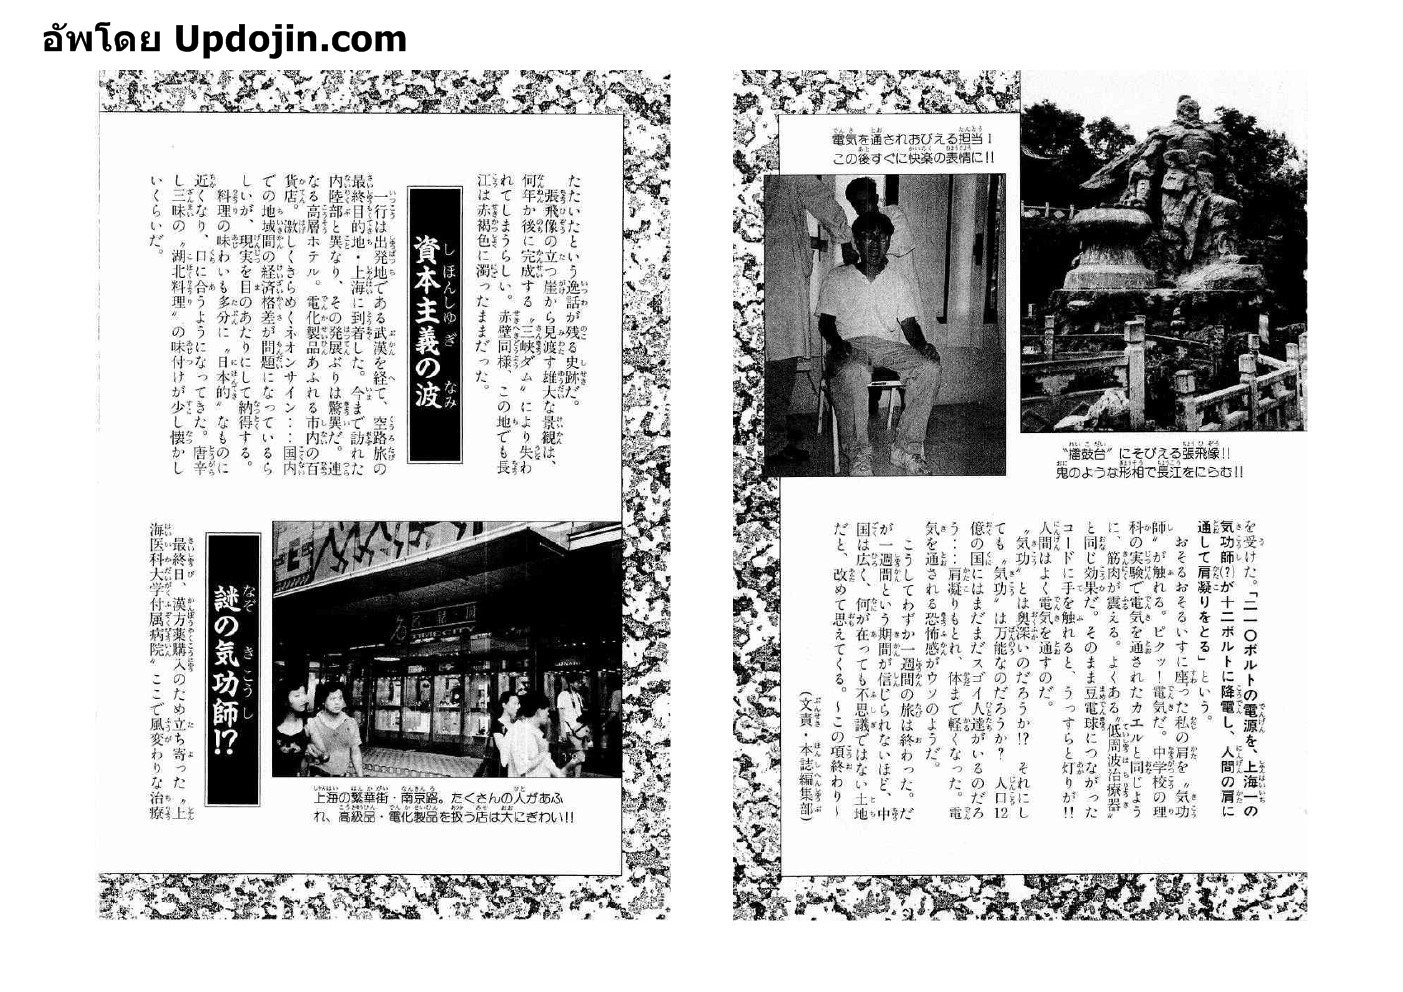 อัพโดย Updojin.com
たたいたという逸話が残る史跡だ。
張飛像の立つ崖から見渡す雄大な景観は、
何年か後に完成する〝三峡ダム〟により失わ
れてしまうらしい。赤壁同様、この地でも長
江は赤褐色に濁ったままだった。
資本主義の波
一行は出発地である武漢を経て、空路旅の
最終目的地・上海に到着した。今まで訪れた
内陸部と異なり、その発展ぶりは驚異だ。連
なる高層ホテル。電化製品あふれる市内の百
貨店。激しくきらめくネオンサイン…国内
での地域間の経済格差が問題になっているら
しいが、現実を目のあたりにして納得する。
料理の味わいも多分に〝日本的〟なものに
近くなり、口に合うようになってきた。唐辛
し三昧の〝湖北料理〟の味付けが少し懐かし
いくらいだ。
上海の繁華街・南京路。たくさんの人があふ
れ、高級品・電化製品を扱う店は大にぎわい!!
謎の気功師!?
最終日、漢方薬購入のため立ち寄った〝上
海医科大学付属病院〟ここで風変わりな治療
電気を通されおびえる担当！
この後すぐに快楽の表情に!!
〝擂鼓台〟にそびえる張飛像!!
鬼のような形相で長江をにらむ!!
を受けた。「二一〇ボルトの電源を、上海一の
気功師(?)が十二ボルトに降電し、人間の肩に
通して肩凝りをとる」という。
おそるおそるいすに座った私の肩を〝気功
師〟が触れる。ピクッ！電気だ。中学校の理
科の実験で電気を通されたカエルと同じよう
に、筋肉が震える。よくある〝低周波治療器〟
と同じ効果だ。そのまま豆電球につながった
コードに手を触れると、うっすらと灯りが!!
人間はよく電気を通すのだ。
〝気功〟とは奥深いのだろうか!?　それにし
ても〝気功〟は万能なのだろうか？　人口12
億の国にはまだまだスゴイ人達がいるのだろ
う…肩凝りもとれ、体まで軽くなった。電
気を通される恐怖感がウソのようだ。
こうしてわずか一週間の旅は終わった。だ
が一週間という期間が信じられないほど、中
国は広く、何が在っても不思議ではない土地
だと、改めて思えてくる。〜この項終わり〜
（文責・本誌編集部）